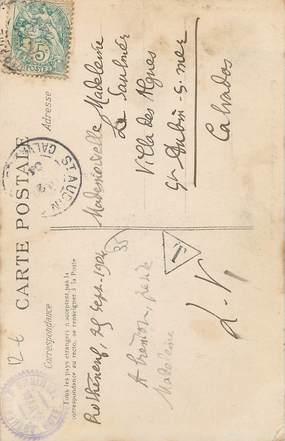 CARTE POSTALE
Correspondance
Adresse
Tous les pays étrangers n'acceptent pas la
correspondance au recto, se renseigner à la Poste
Rothéneuf, 25 Sept. 1904
Mademoiselle Madeleine
Le Saulnier
Villa des Algues
St Aubin-s-mer
Calvados
A bientôt, petite
Madeleine
ST AUBIN
CALV
12-6
35